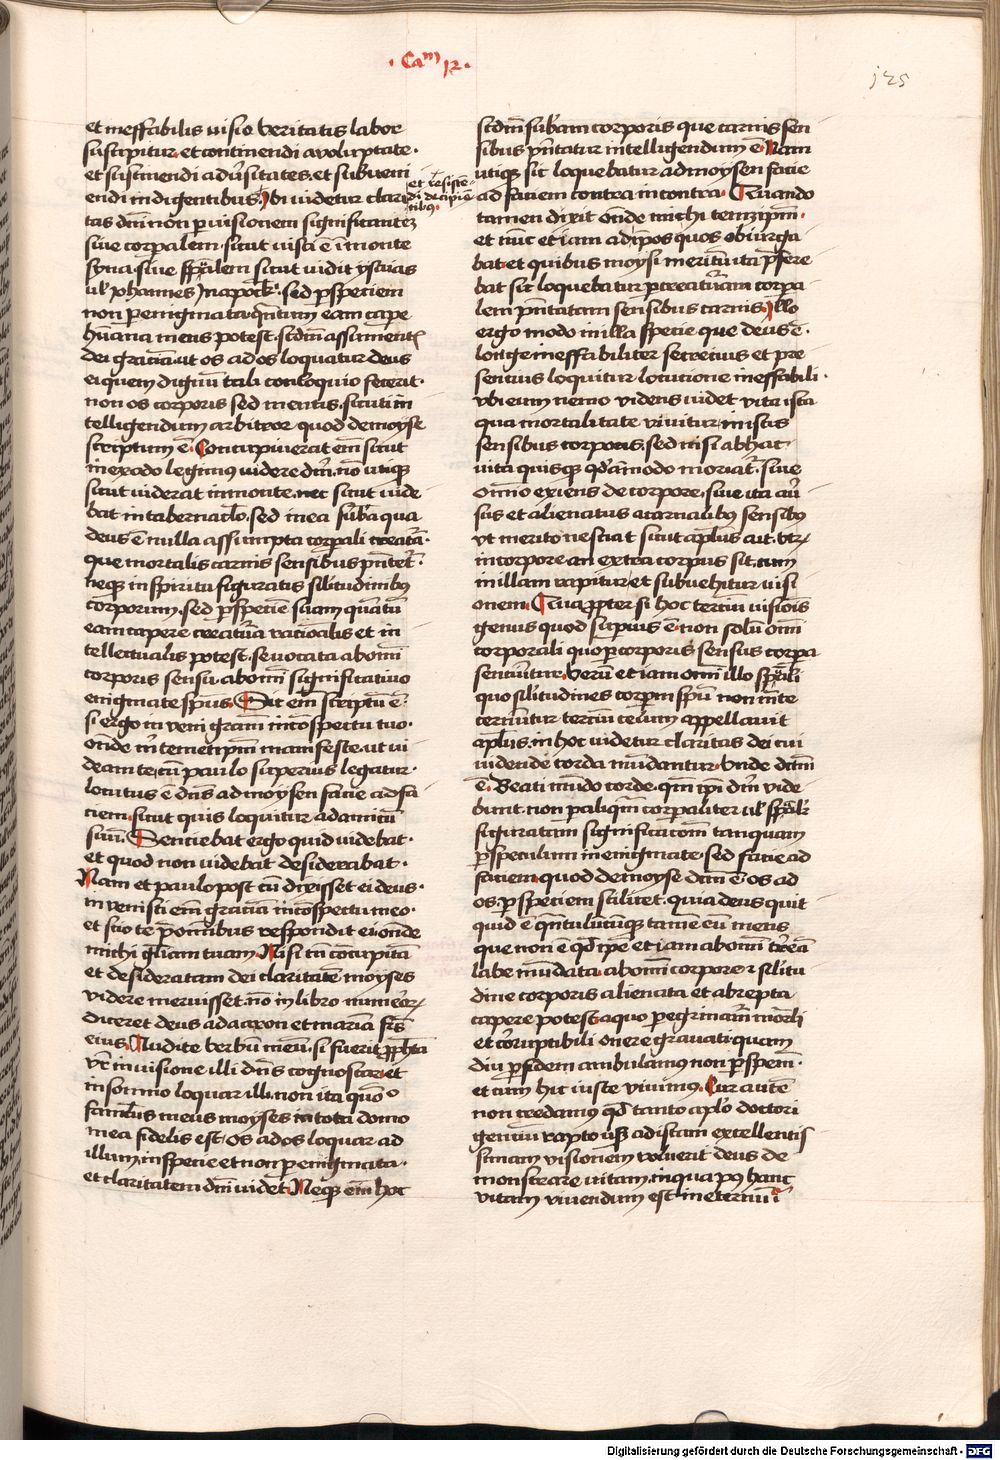 · Ca^m 12 ·
125
et ineffabilis visio veritatis labor
suscipitur et continendi a voluptate ·
et sustinendi adu'sitates et subueni
endi indigentibus Ibi videtur clari
et resistē
di decipiē
tibus ·
tas dn̄i non p visionem significantē
siue corpalem · sicut visa ē ī monte
syna siue sp̄ualem sicut vidit ysaias
ul' Johannes in apoc̄ · sed p speciem
non p enigmata quantum eam cape
humana mens potest · scdm̄ assumentis
dei graciā ut os ad os loquatur deus
ei quem dignū tali colloquio fecerit ·
non os corporis sed mentis · sicuti in
telligendum arbitror quod de moyse
scriptum ē · Concupiuerat em̄ sicut
in exodo legimus videre dm̄ · nō utiq
sicut viderat in monte · nec sicut vide
bat in tabernaclo · sed in ea sub'a qua
deus ē nulla assumpta corporali creatā ·
que mortalis carnis sensibus pn̄tet' ·
neq in spiritu figuratis silitudinibꝰ
corporum · sed p speciē suam quātū
eam capere creatura racionalis et in
tellectualis potest · seuocata ab omī
corporis sensu ab omī significatiuo
enigmate spūs · Sic em̄ scriptū ē ·
si ergo inveni grām in cōspectu tuo ·
onde m' temetip̄m manifeste · ut vi
deam te · cū paulo superius legatur ·
locutus ē dn̄s ad moysen facie ad fa
ciem · sicut quis loquitur ad amicū
suū · Senciebat ergo quid videbat ·
et quod non videbat desiderabat ·
Nam et paulo post cū dixisset ei deus ·
invenisti em̄ graciā in cōspectu meo ·
et scio te p̄ omnibus respondit ei · onde
michi gliam tuam · Nisi tn̄ cōcupitā
et desideratam dei claritatē moyses
videre meruisset · nō in libro numeroꝝ
diceret deus ad aaron et mariā frēs
eius · Audite verbū meū · si fuerit p̄phetā
vr̄ in visione illi dn̄s cognoscar · et
in somno loquar illi · non ita quō
famulus meus moyses in tota domo
mea fidelis est · os ad os loquar ad
illum · in specie et non p enigmata ·
et claritatem dn̄i videt · Neq em̄ hoc
scdm̄ sub'am corporis que carnis sen
sibus pn̄tatur intelligendum ē · Nam
utiq sic loquebatur ad moysen facie
ad faciem contra in contra · Quando
tamen dixit onde michi temetip̄m ·
et nūc etiam ad ip̄os quos obiurga
bat et quibus moysi meritū ita p̄fere
bat sic loquebatur p creaturam corpa
lem pn̄tatam sensibus carnis · Illo
ergo modo in illa specie que deus ē ·
longe ineffabiliter secrecius et pre
sencius loquitur locutione ineffabili ·
vbi eum nemo videns videt vita ista
qua mortalitate vivitur in istis
sensibus corporis · sed nisi ab hac
vita quisq qdāmodo moriat' · siue
omīo exiens de corpore · siue ita au'
sus et alienatus a carnalibꝰ sensibꝰ
vt merito nesciat sicut ap̄lus ait · vtꝝ
in corpore an extra corpus sit · cum
in illam rapitur et subvehitur visi
onem · Quapropter si hoc terciū visiōis
genus quod supius ē non solū omī
corporali quo p corporis sensus corpa
senciūtur · verū et iam omī illo sp̄uali
quo silitudines corpm̄ spū non mēte
cernūtur terciū celum appellauit
ap̄lus · in hoc videtur claritas dei cui
vidende corda mūdantur · Vnde dcm̄
ē · Beati mūdo corde · qm̄ ip̄i dm̄ vide
bunt · non p aliqm̄ corpaliter ul' sp̄ualr̄
figuratam significacōem tanquam
p speculum in enigmate · sed facie ad
faciem quod de moyse dcm̄ ē os ad
os · p speciem scilicet · quia deus quit
quid ē qn̄tulūcūq tamē eū mens
que non ē qd̄ ip̄e etiam ab omī t'rena
labe mūdata · ab omī corpore ⁊ silitu
dine corporis alienata et abrepta
capere potest · a quo p̄egrinam̄ mor̄li
et corruptibili onere grauati · quam
diu p fidem ambulamus non p spem ·
et cum hic iuste vivimꝰ · Cur autē
non credamꝰ qd̄ tanto ap̄lo doctori
genciū rapto usq ad istam excellentis
simam visionem voluerit deus de
monstrare vitam in qua pꝰ hanc
vitam vivendum est in eternū ·
Digitalisierung gefördert durch die Deutsche Forschungsgemeinschaft - DFG